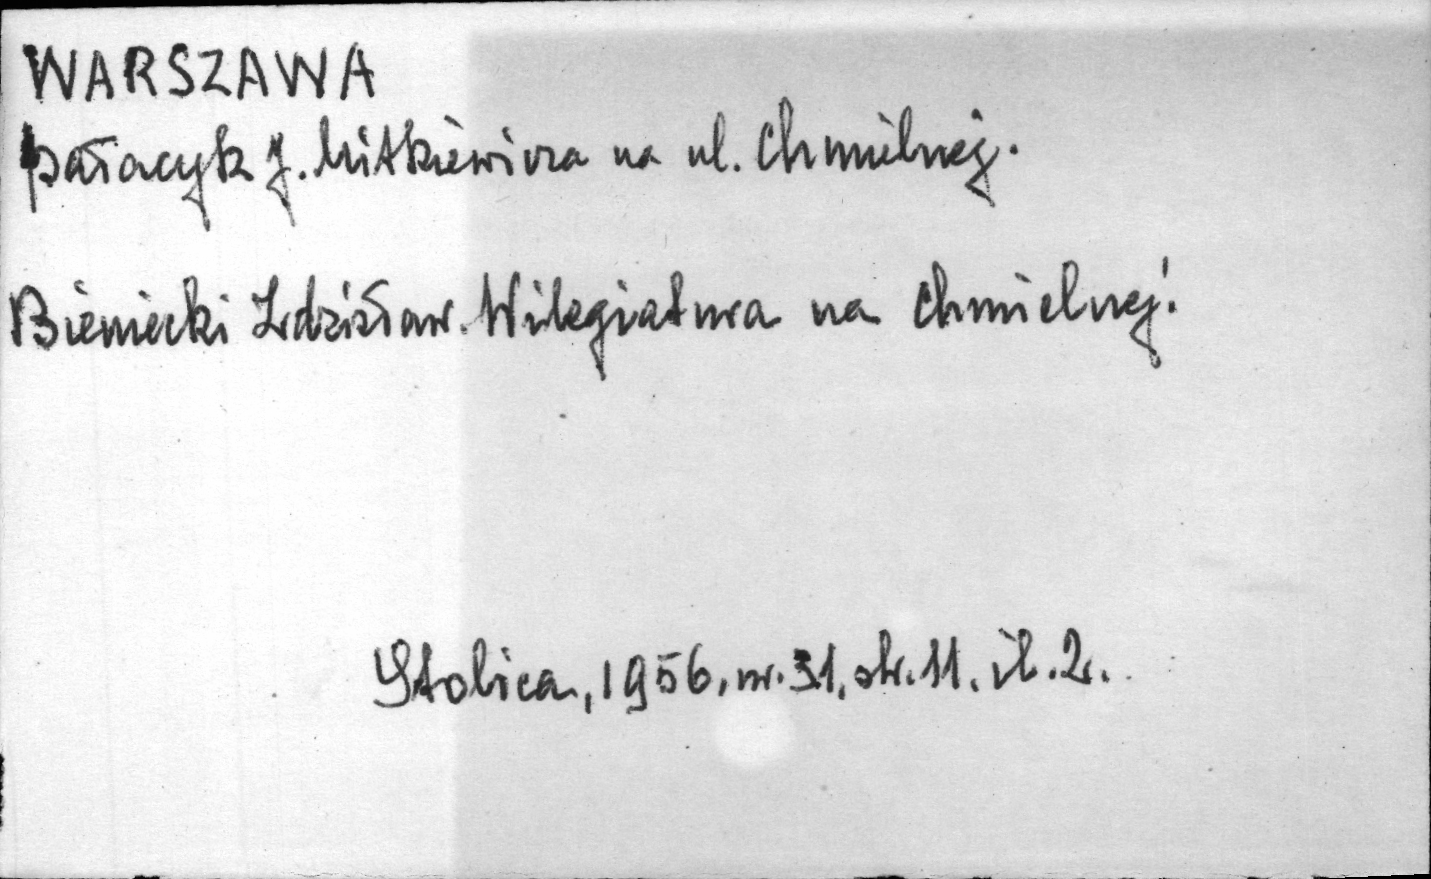 WARSZAWA
pałacyk J. Mitkiewicza na ul. Chmielnej.
Bieniecki Zdzisław. Wilegiatura na Chmielnej.
Stolica, 1956, nr. 31, str. 11. il. 2.